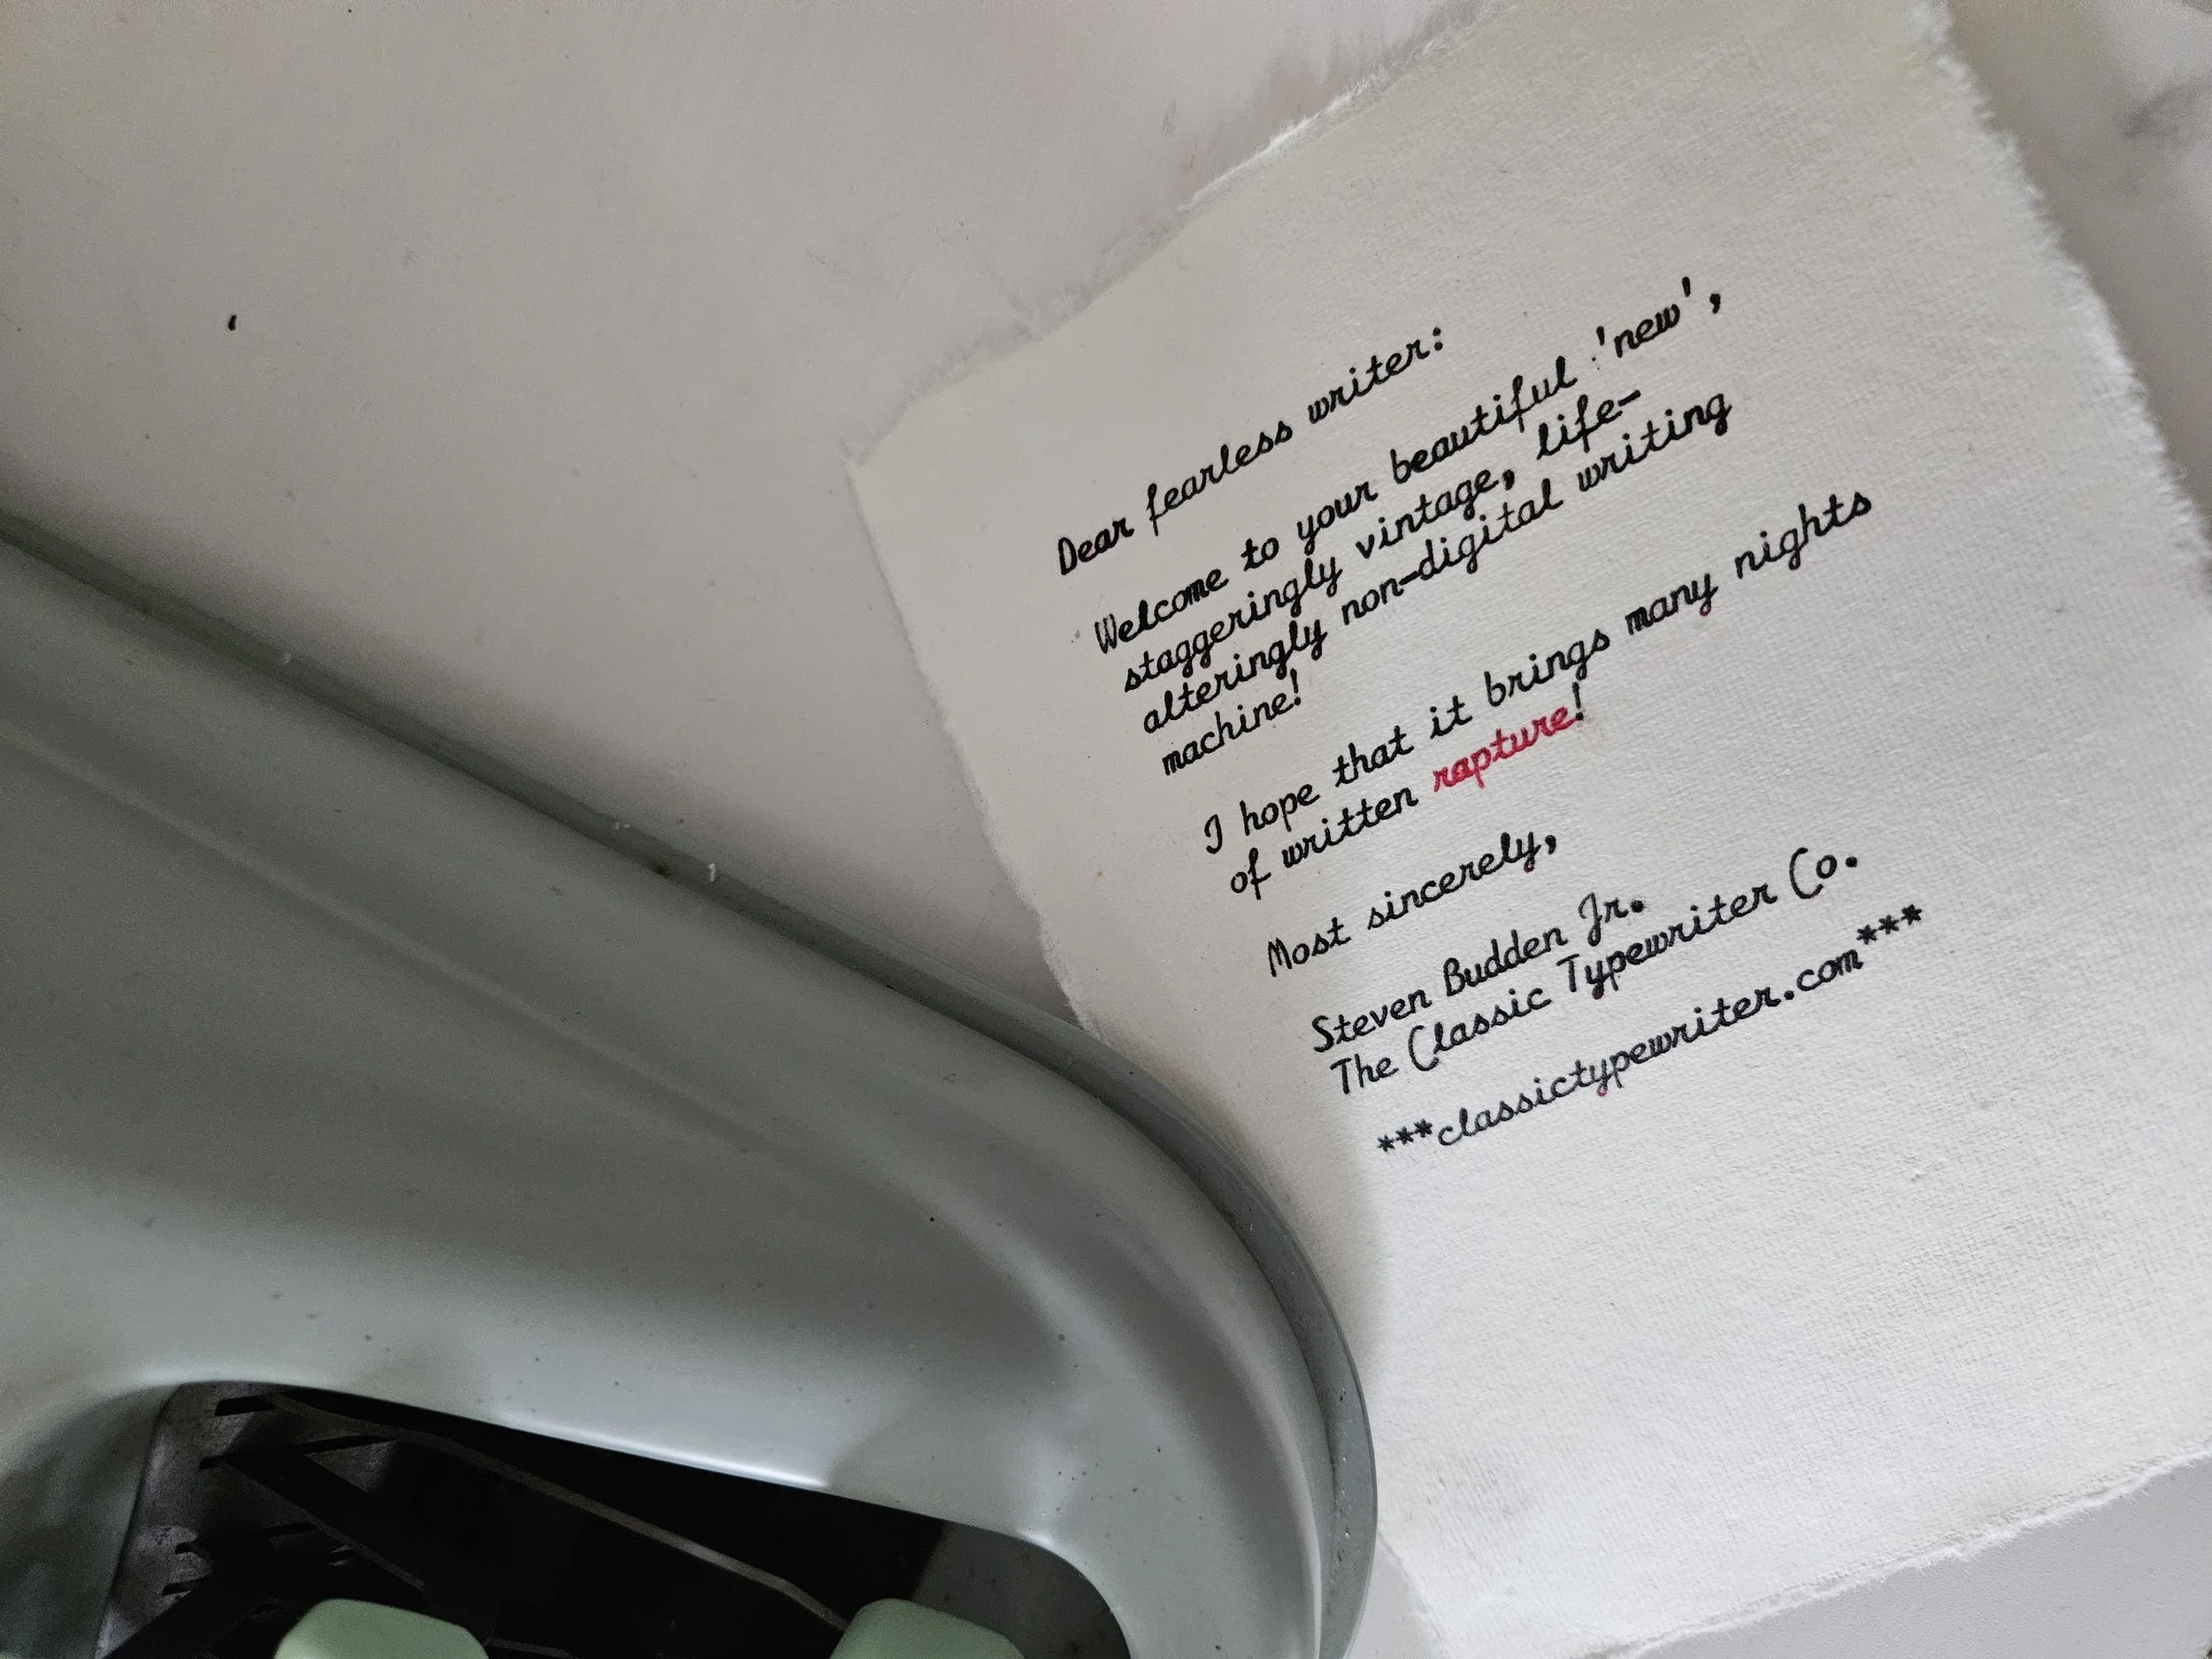 Dear fearless writer:
Welcome to your beautiful 'new',
staggeringly vintage, life-
alteringly non-digital writing
machine!
I hope that it brings many nights
of written rapture!
Most sincerely,
Steven Budden Jr.
The Classic Typewriter Co.
***classictypewriter.com***